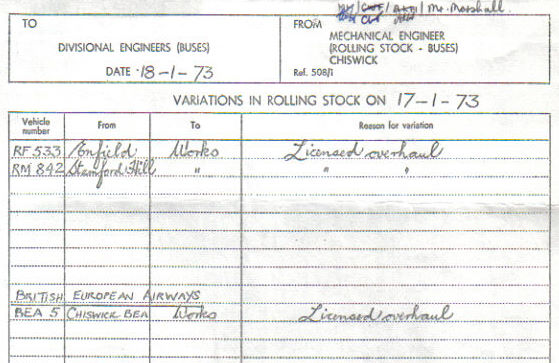 Mr. Marshall.
TO
DIVISIONAL ENGINEERS (BUSES)
DATE 18-1-73
FROM
MECHANICAL ENGINEER
(ROLLING STOCK - BUSES)
CHISWICK
Ref. 508/1
VARIATIONS IN ROLLING STOCK ON 17-1-73
Vehicle number From To Reason for variation
RF 533 Enfield Works Licensed overhaul
RM 842 Stamford Hill " " "
BRITISH EUROPEAN AIRWAYS
BEA 5 CHISWICK BEA Works Licensed overhaul